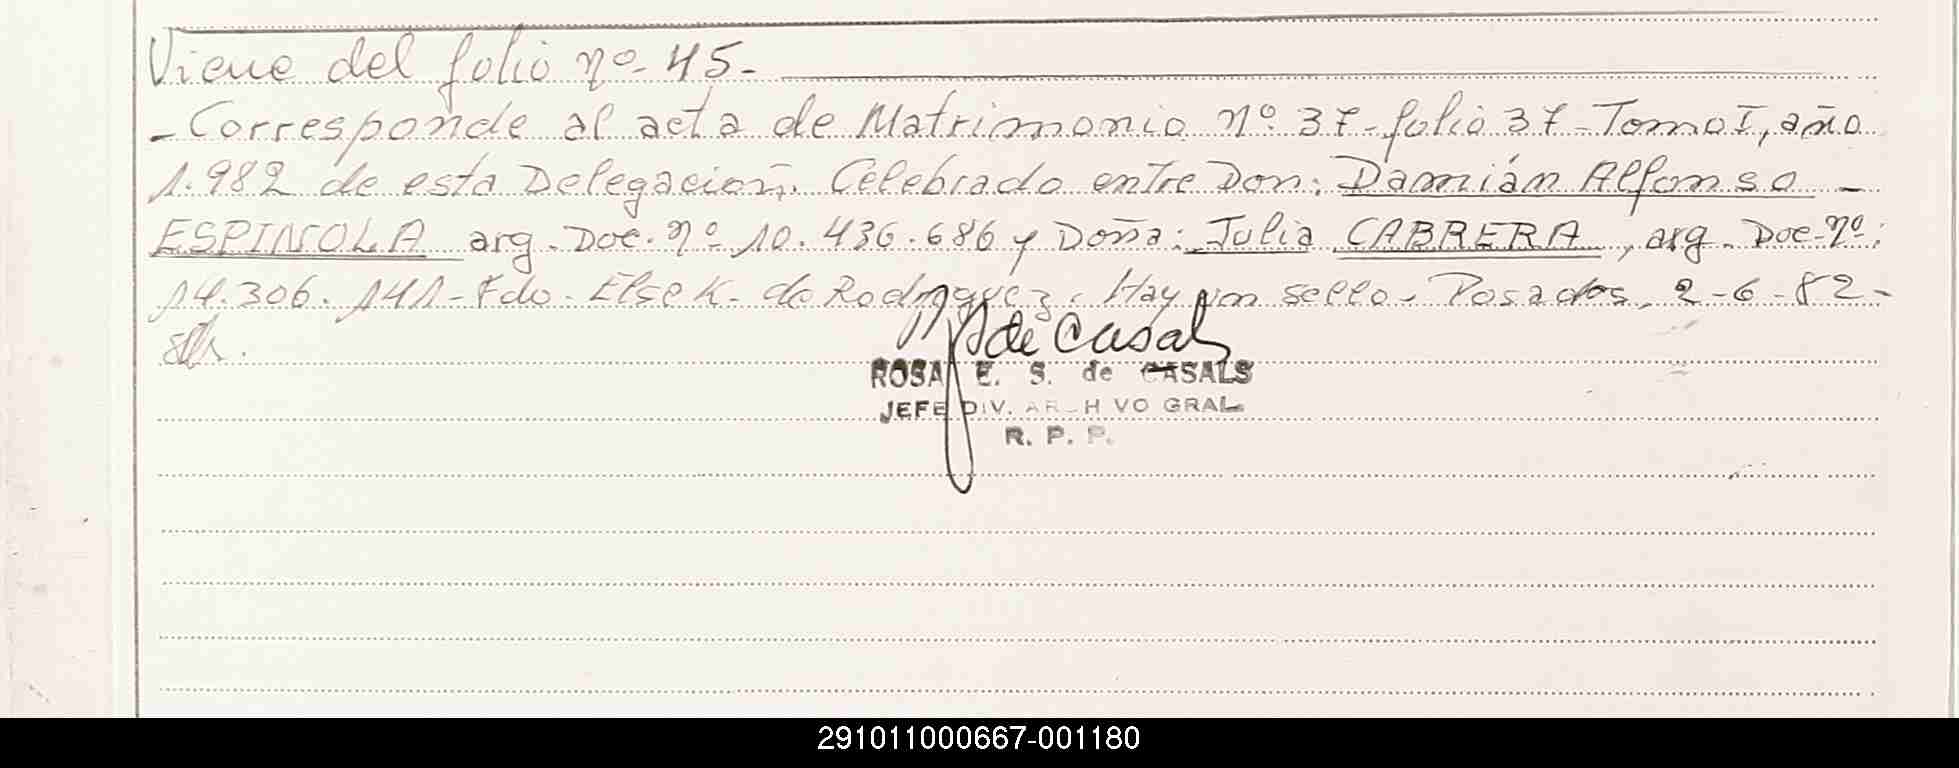 Viene del folio nº 45-
- Corresponde al acta de Matrimonio nº 37 - folio 37 - Tomo I, año
1.982 de esta Delegación. Celebrado entre Don: Damián Alfonso -
ESPINOLA arg. Doc. nº 10.436.686 y Doña: Julia CABRERA, arg. Doc. nº:
14.306.141 - Fdo. Else K. de Rodriguez. Hay un sello. Posadas, 2-6-82-
de Casals
ROSA E. S. de CASALS
JEFE DIV. ARCHIVO GRAL
R. P. P.
291011000667-001180